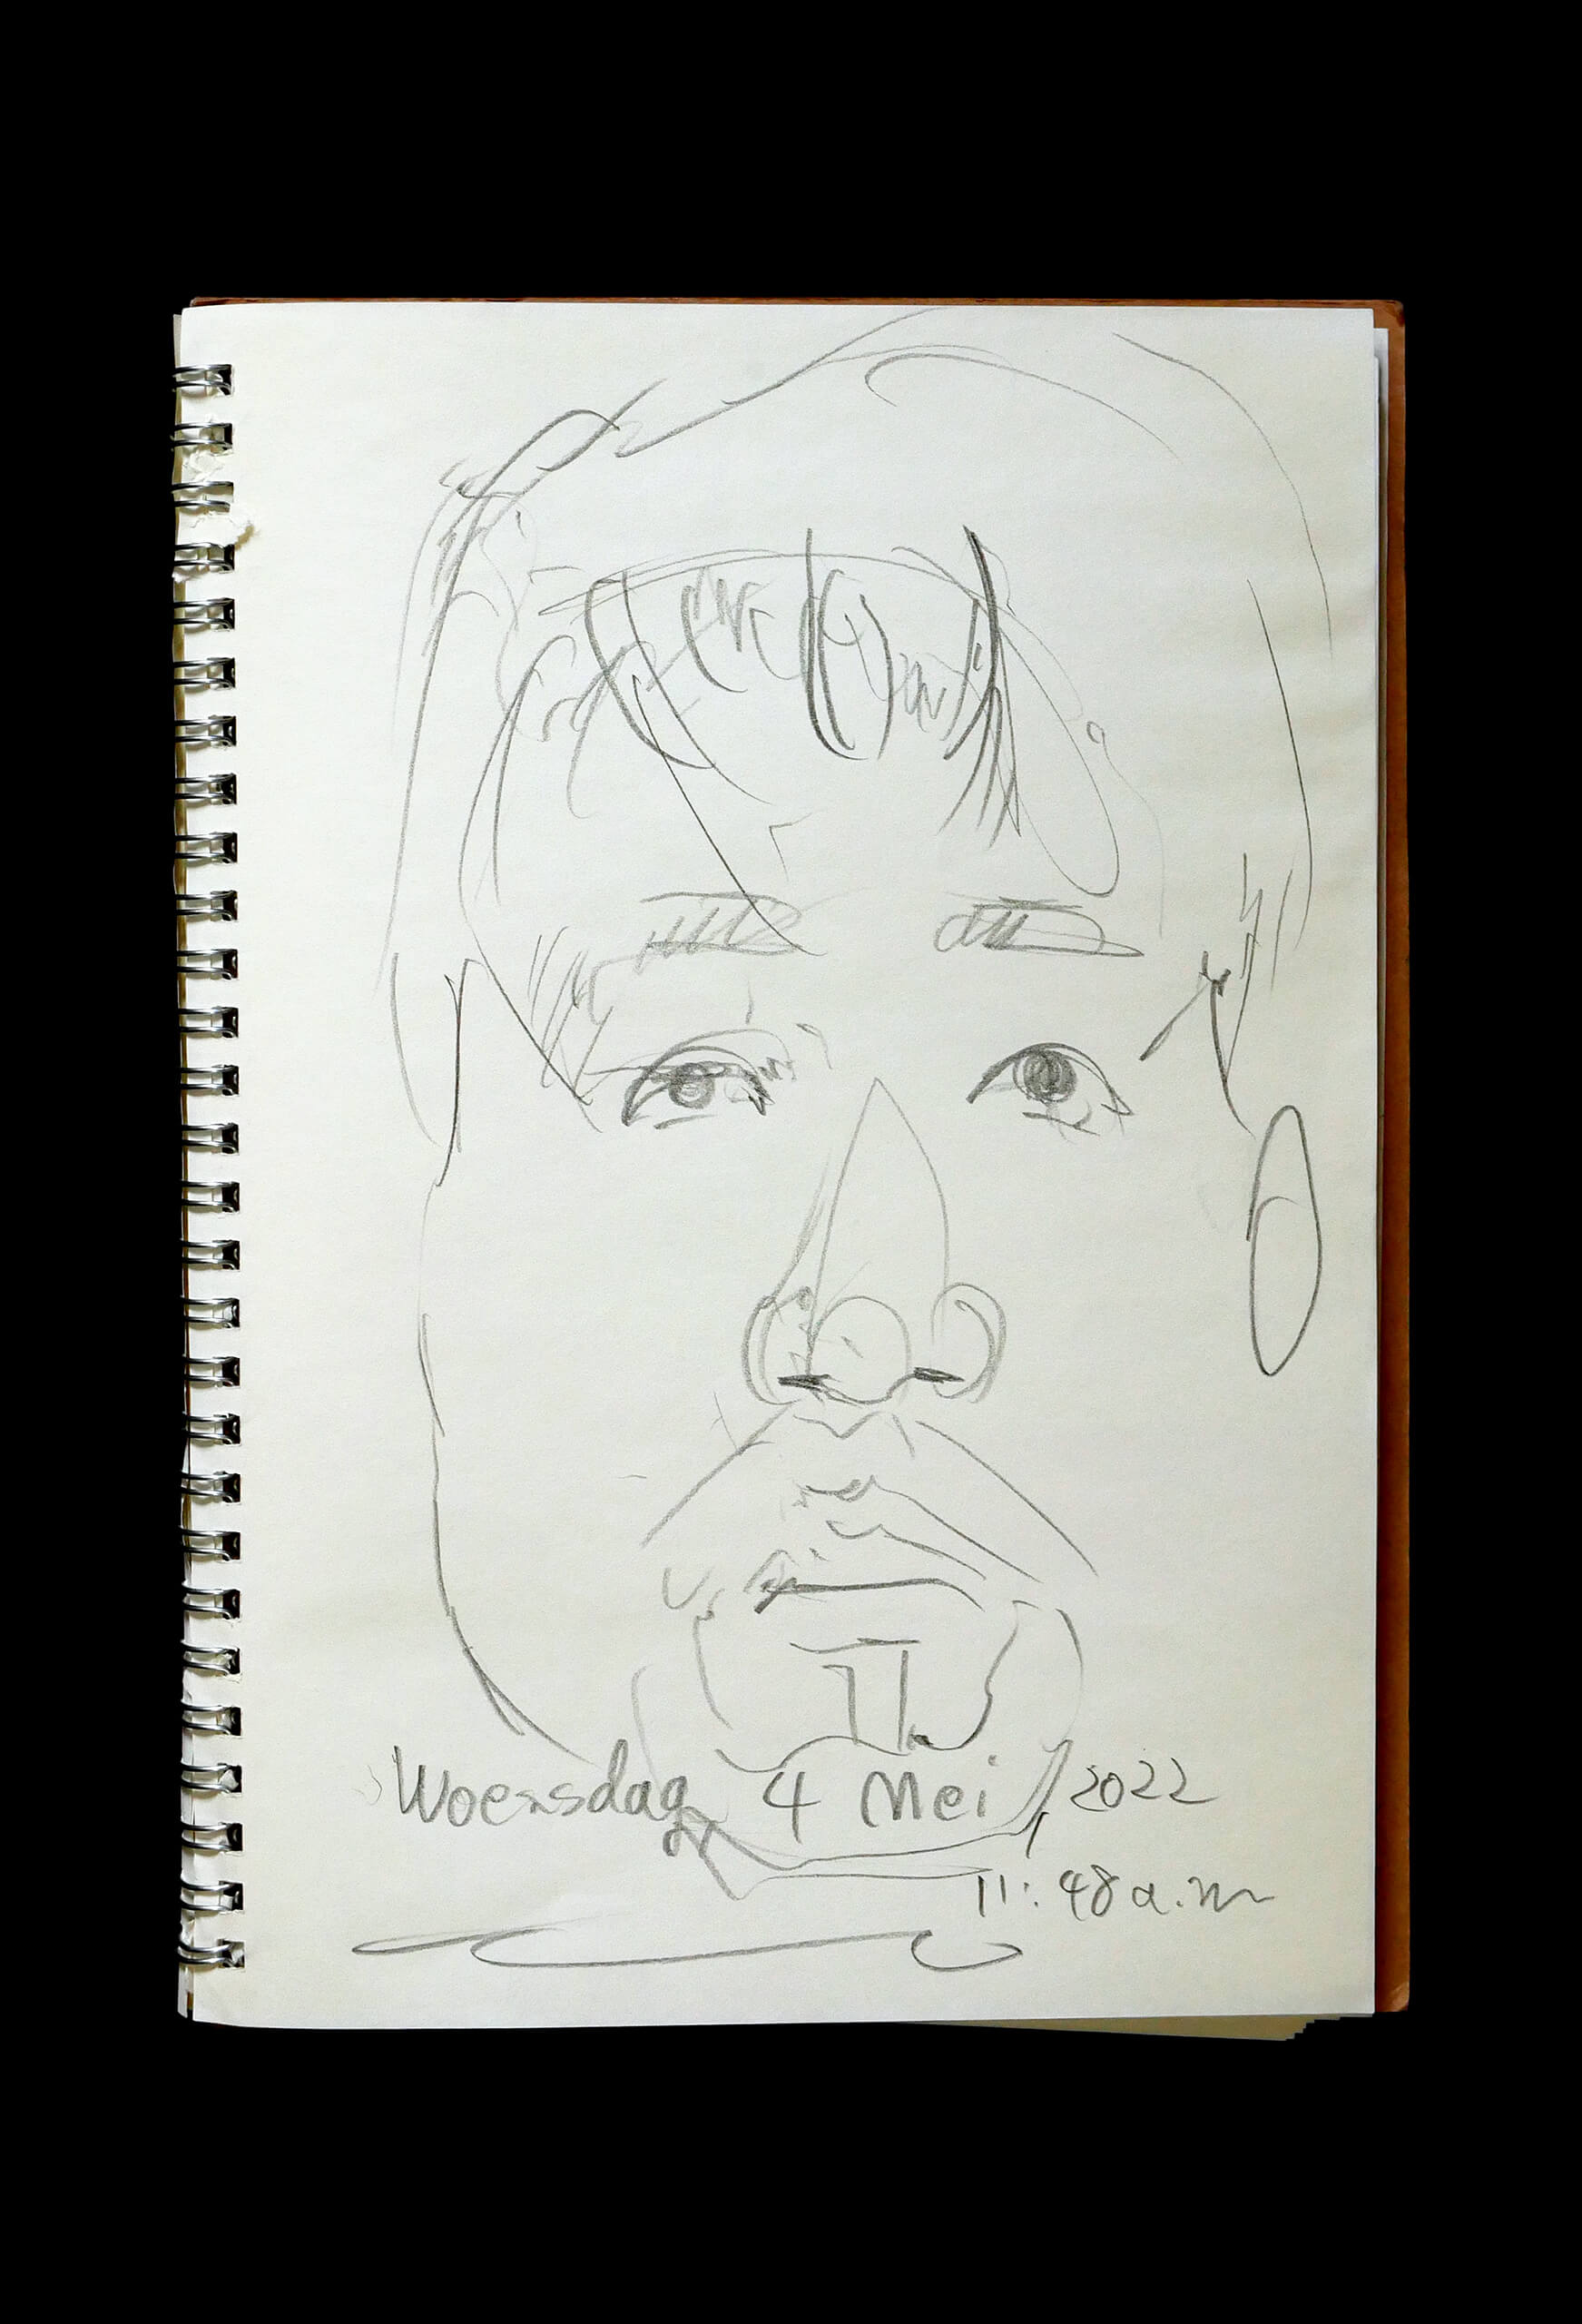 Woensdag 4 Mei 2022
11:48 a.m